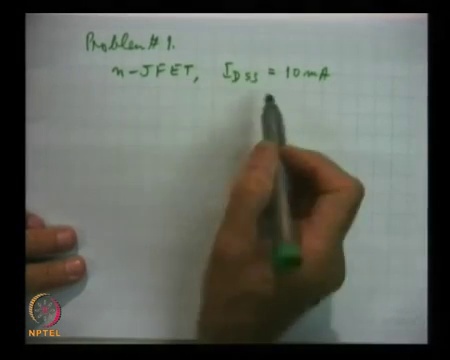 Problem # 1.
n-JFET, IDSS = 10 mA
NPTEL